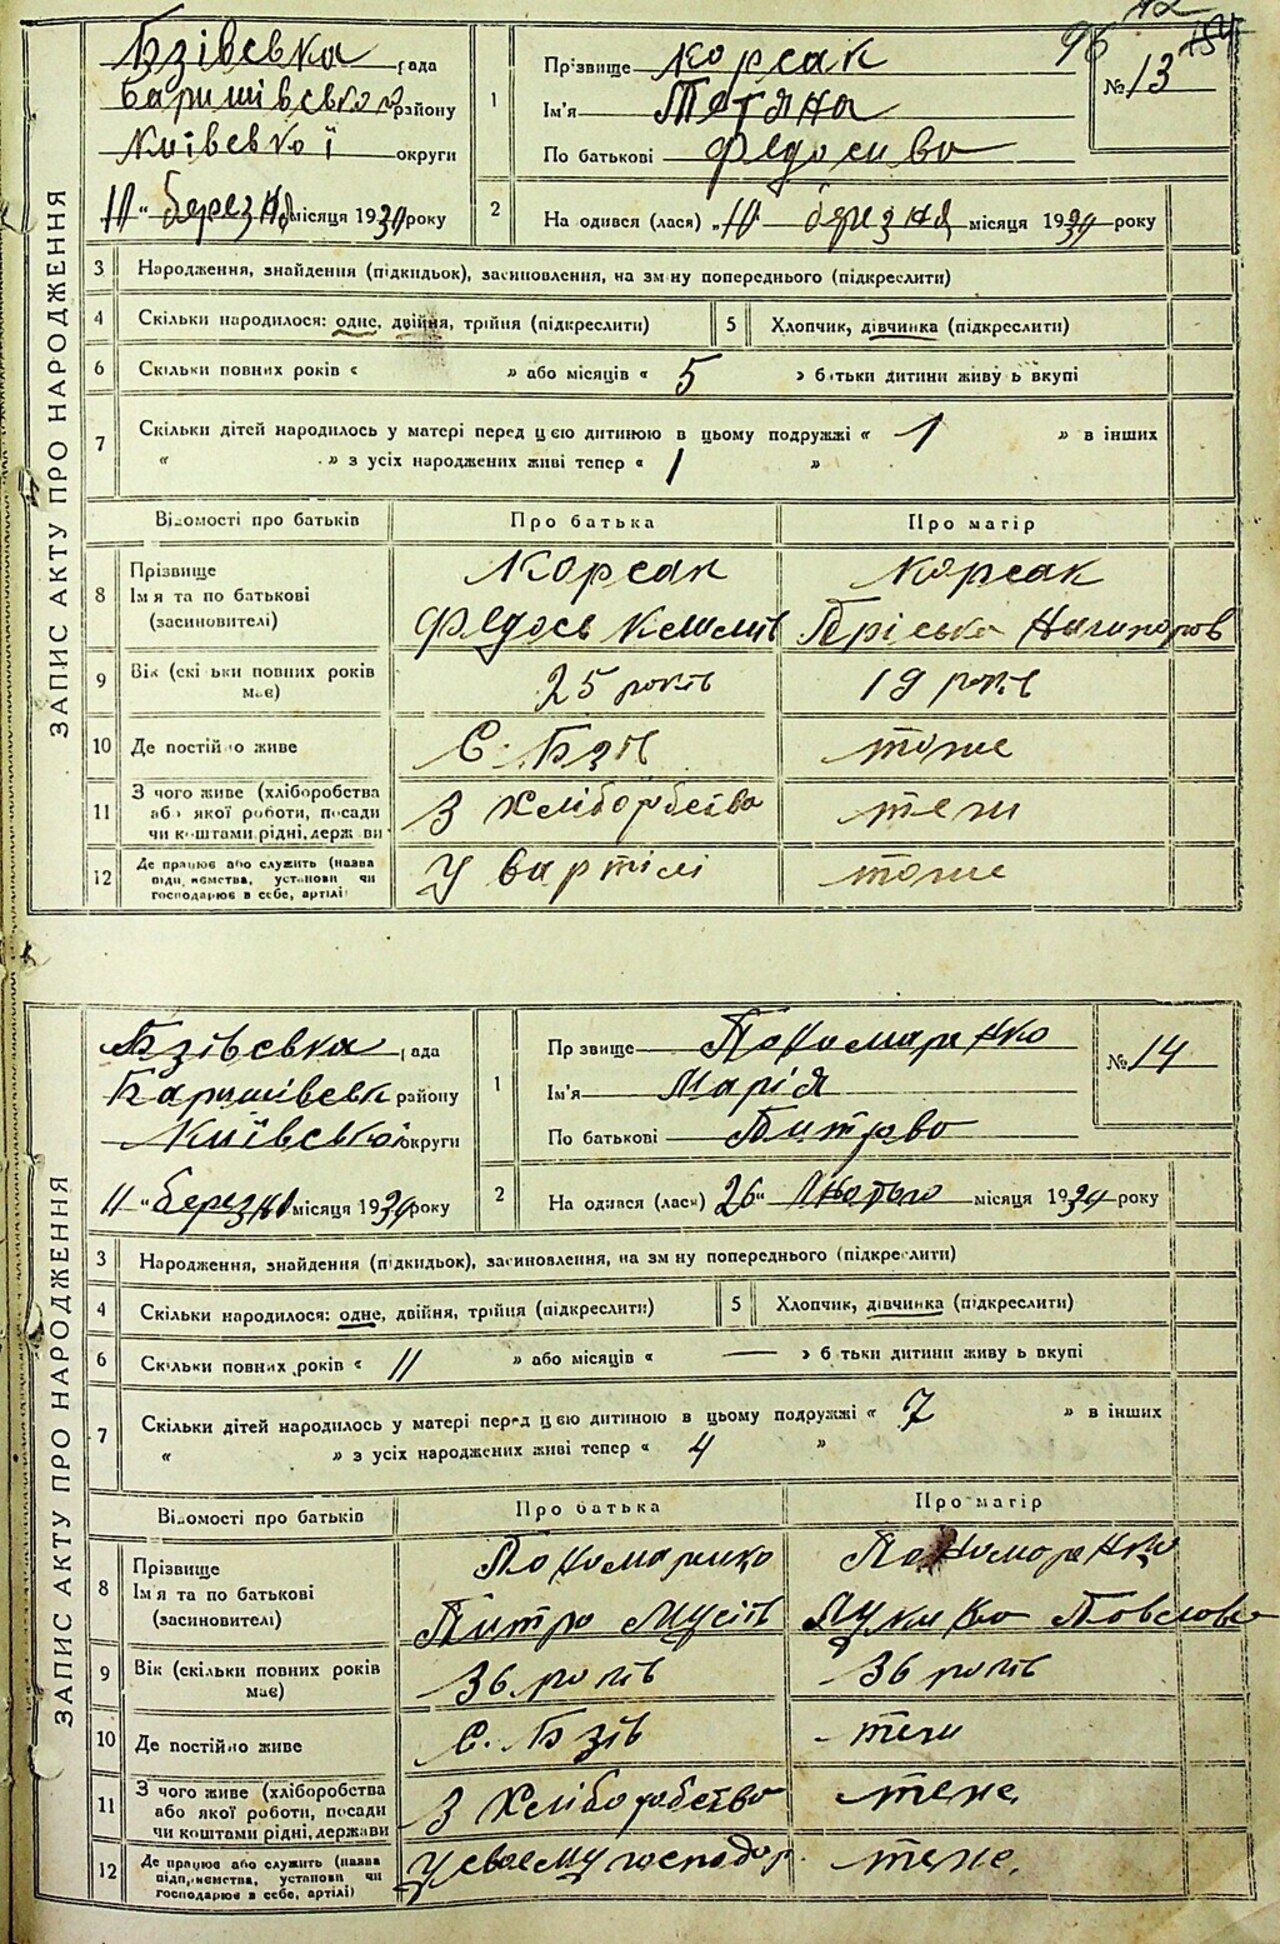 ЗАПИС АКТУ ПРО НАРОДЖЕННЯ
Бзівська рада
Баришівсько району
Київської округи
10 " березня місяця 1930 року
1
Прізвище Корсак
Ім'я Тетяна
По батькові Федосива
96
№ 13
2
На одився (лася) „10 березня місяця 1930 року
3 Народження, знайдення (підкидьок), засиновлення, на зм ну попереднього (підкреслити)
4 Скільки народилося: одне, двійня, трійня (підкреслити)
5 Хлопчик, дівчинка (підкреслити)
6 Скільки повних років « » або місяців « 5 » батьки дитини живу ь вкупі
7 Скільки дітей народилось у матері перед цією дитиною в цьому подружжі « 1 » в інших
« » з усіх народжених живі тепер « 1 »
Відомості про батьків Про батька Про матір
8 Прізвище
Ім'я та по батькові
(засиновителі)
Корсак
Федось
Корсак
Пріська
9 Вік (скільки повних років
має)
25 років 19 років
10 Де постійно живе С. Бзів тоже
11 З чого живе (хліборобства
або якої роботи, посади
чи коштами рідні, держави
З Хліборобства теж
12 Де працює або служить (назва
підприємства, установи чи
господарює в себе, артілі)
У вартілі тоже
ЗАПИС АКТУ ПРО НАРОДЖЕННЯ
Бзівська рада
Баришівськ району
Київської округи
11 " березня місяця 1930 року
1
Прізвище Пономаренко
Ім'я Марія
По батькові Питрово
№ 14
2
На одився (лася) 26" Лютого місяця 1930 року
3 Народження, знайдення (підкидьок), засиновлення, на зм ну попереднього (підкреслити)
4 Скільки народилося: одне, двійня, трійня (підкреслити)
5 Хлопчик, дівчинка (підкреслити)
6 Скільки повних років « 11 » або місяців « — » батьки дитини живу ь вкупі
7 Скільки дітей народилось у матері перед цією дитиною в цьому подружжі « 7 » в інших
« » з усіх народжених живі тепер « 4 »
Відомості про батьків Про батька Про матір
8 Прізвище
Ім'я та по батькові
(засиновителі)
Пономаренко
Питро Мусіїв
Пономоренко
Павловна
9 Вік (скільки повних років
має)
36 років 36 років
10 Де постійно живе С. Бзів теж
11 З чого живе (хліборобства
або якої роботи, посади
чи коштами рідні, держави
З Хліборобства теже.
12 Де працює або служить (назва
підприємства, установи чи
господарює в себе, артілі)
У своему господар. теже.